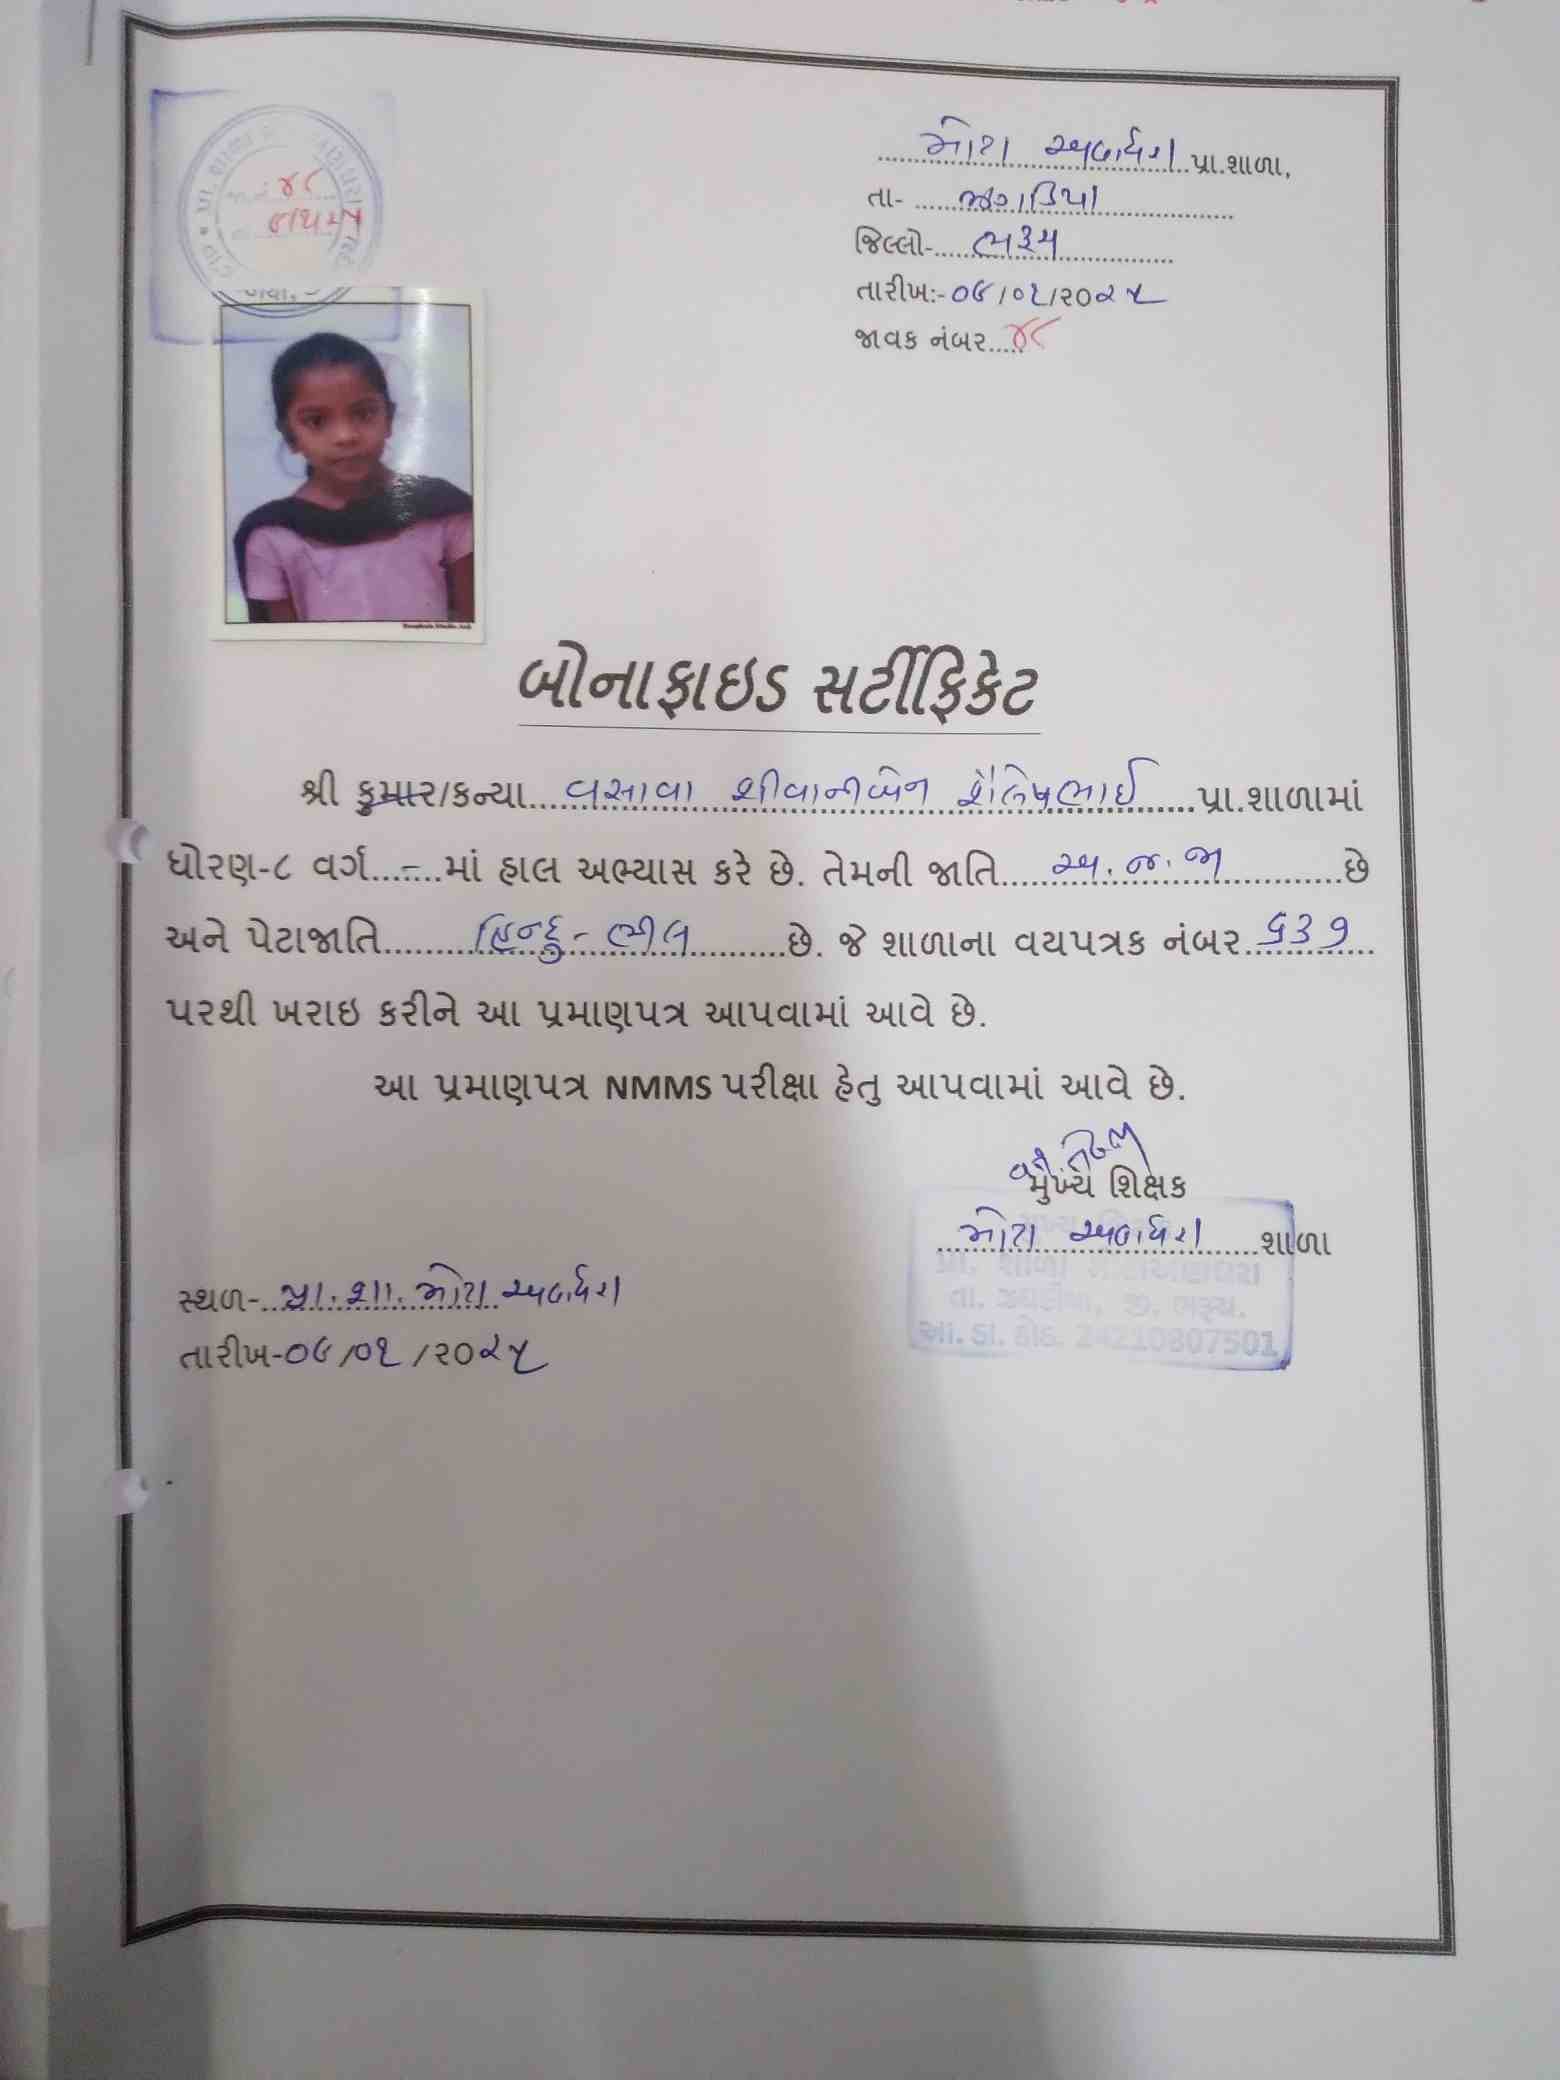 મોટા અણધરા પ્રા.શાળા,
તા- ઝગડિયા
જિલ્લો- ભરૂચ
તારીખ:- ૦૯/૦૧/૨૦૨૫
જાવક નંબર ૪૮
૪૮
બોનાફાઇડ સર્ટીફિકેટ
શ્રી કુમાર/કન્યા વસાવા શીવાનીબેન શૈલેષભાઈ પ્રા.શાળામાં
ધોરણ-૮ વર્ગ - માં હાલ અભ્યાસ કરે છે. તેમની જાતિ અ.જ.જા છે
અને પેટાજાતિ હિન્દુ-ભીલ છે. જે શાળાના વયપત્રક નંબર ૬૩૭
પરથી ખરાઇ કરીને આ પ્રમાણપત્ર આપવામાં આવે છે.
આ પ્રમાણપત્ર NMMS પરીક્ષા હેતુ આપવામાં આવે છે.
મુખ્ય શિક્ષક
મોટા અણધરા શાળા
પ્રા. શાળા મોટાઅણધરા
તા. ઝઘડીયા, જી. ભરૂચ.
24210807501
સ્થળ- પ્રા.શા. મોટા અણધરા
તારીખ-૦૯/૦૧/૨૦૨૫